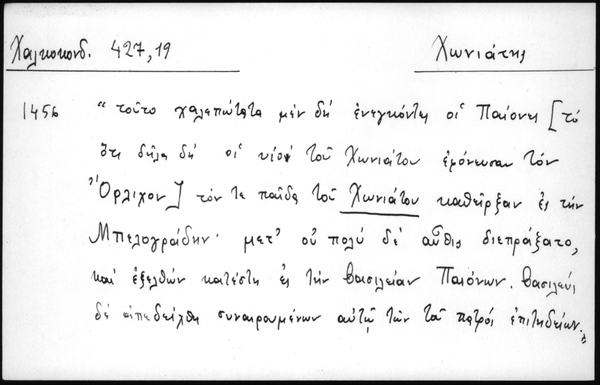 Χαλκοκονδ. 427,19
Χωνιάτης
1456 "τοῦτο χαλεπώτατα μὲν δὴ ἐνεγκόντες οἱ Παίονες [τὸ
ὅτι δῆλα δὴ οἱ υἱοὶ τοῦ Χωνιάτου ἐφόνευσαν τὸν
Ὄρλιχον] τόν τε παῖδα τοῦ Χωνιάτου καθεῖρξαν ἐς τὴν
Μπελογράδην· μετ' οὐ πολὺ δὲ αὖθις διεπράξατο,
καὶ ἐξελθὼν κατέστη ἐς τὴν βασιλείαν Παιόνων. βασιλεὺς
δὲ ἀπεδείχθη συναιρομένων αὐτῷ τῶν τοῦ πατρὸς ἐπιτηδείων."